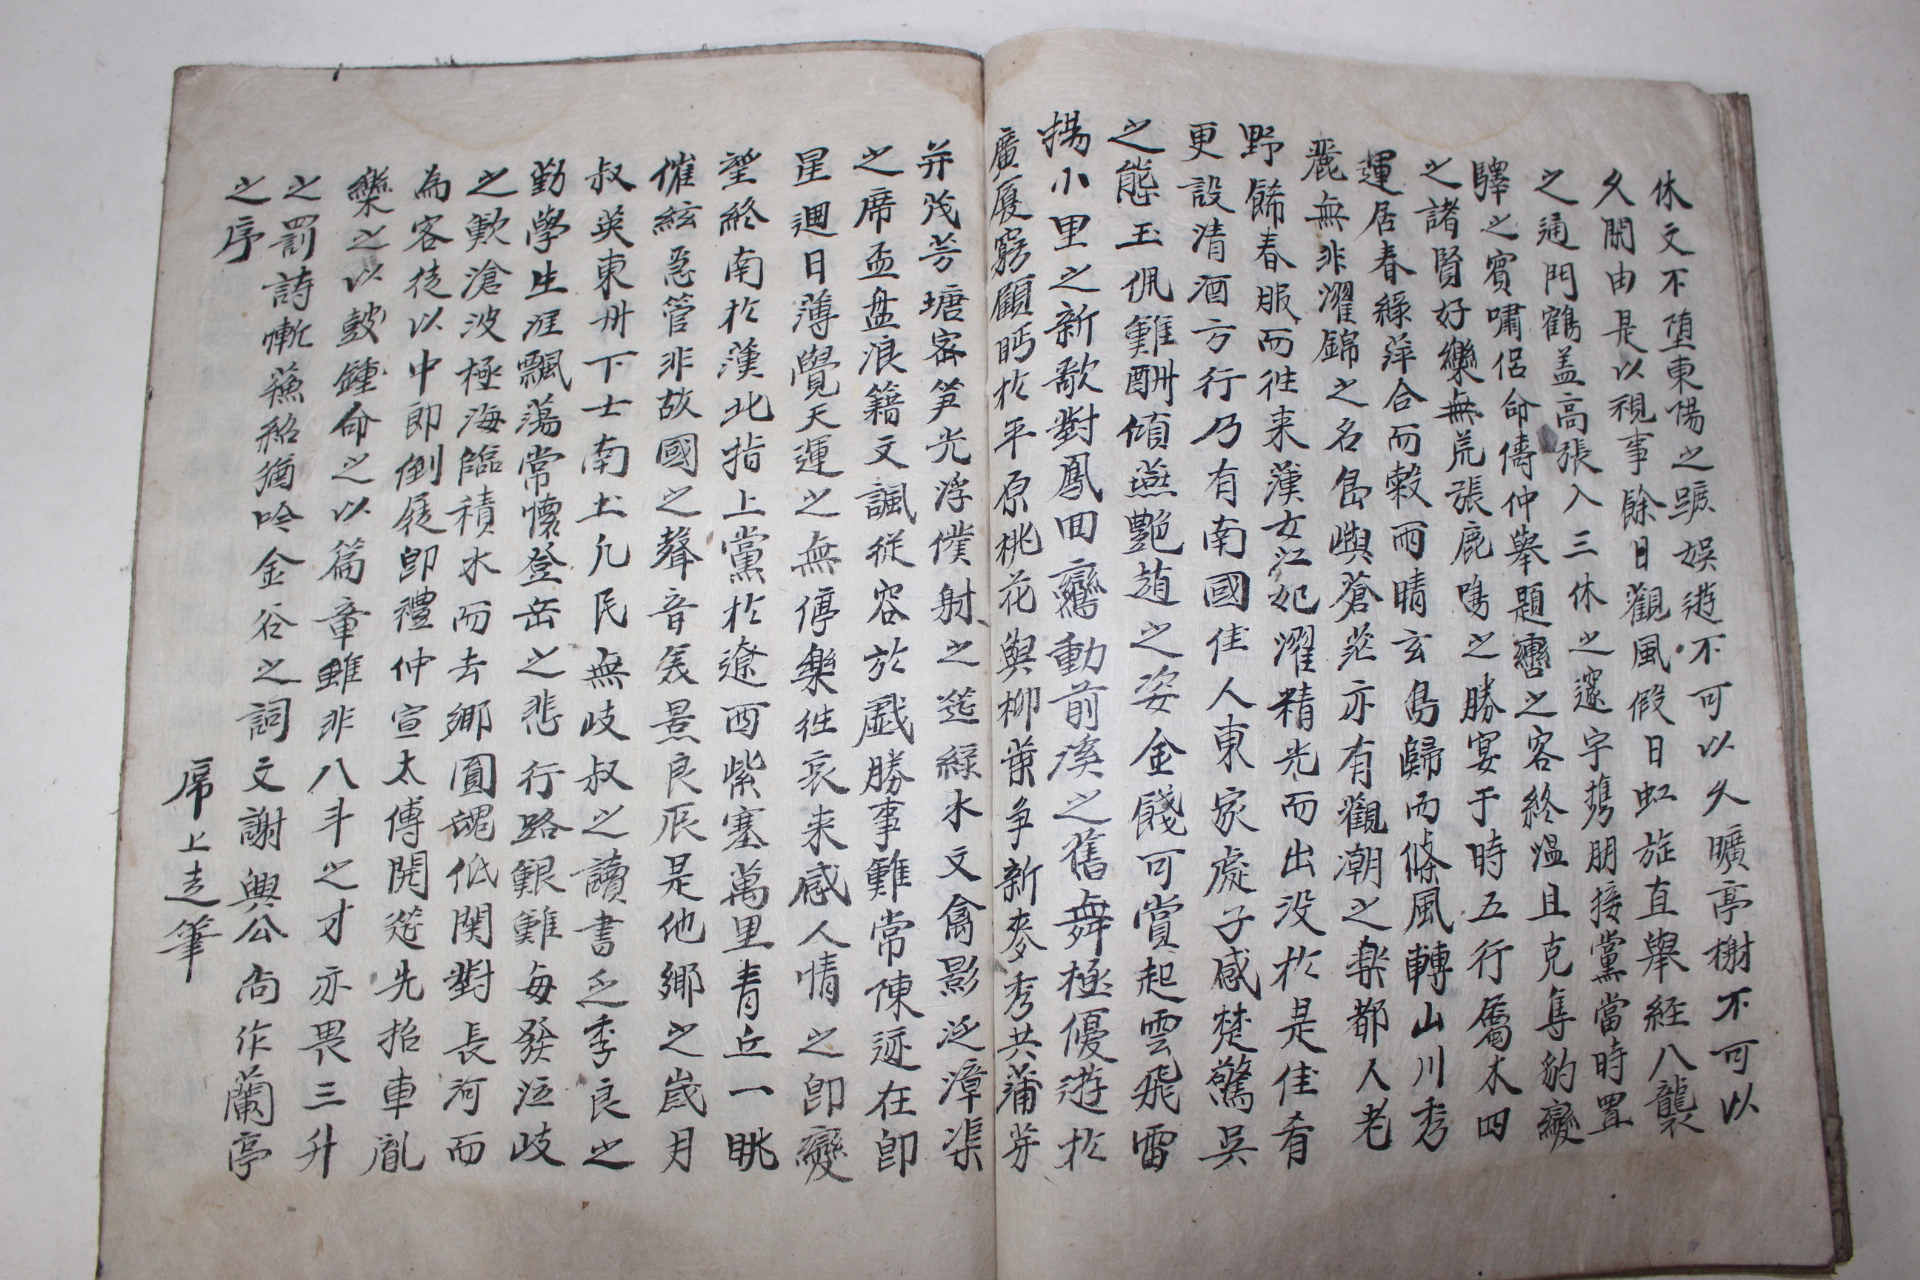 休文不堕東陽之職娯遊不可以久曠亭榭不可以
久閑由是以視事餘日觀風假日虹旋直擧經八襲
之通門鶴盖高張入三休之邃宇携朋接黨當時置
驛之賓嘯侶命儔仲擧題轡之客終温且克隼豹變
之諸賢好樂無荒張鹿鳴之勝宴于時五行屬木四
運居春綠萍合而穀雨晴玄鳥歸而條風轉山川秀
麗無非濯錦之名島嶼蒼茫亦有觀潮之楽都人老
野餙春服而徃来漢女江妃濯精光而出没於是佳肴
更設清酒方行乃有南國佳人東家處子感楚驚吳
之態玉佩難酬傾燕艶趙之姿金餞可賞起雲飛雷
揚小里之新歌對鳳回鸞動前溪之舊舞極優遊於
廣厦窮顧眄於平原桃花與柳葉争新麥秀共蒲芽
并茂芳塘密笋光浮僕射之莚綠水文禽影泛漳渠
之席盃盘浪籍文諷從容於戱勝事難常陳迹在卽
星週日薄覺天運之無停樂徃哀来感人情之卽變
望終南於漢北指上黨於遼西紫塞萬里青丘一眺
催絃急管非故國之聲音羙景良辰是他鄉之歲月
叔英東卅下士南土凢民無岐叔之讀書乏季良之
勤學生涯飄蕩常懷登岳之悲行路艱難每發泣岐
之歎滄波極海臨積水而去鄉圓魂低関對長河而
為客徒以中郎倒屣卽禮仲宣太傅開莚先招車胤
樂之以鼓鍾命之以篇章雖非八斗之才亦畏三升
之罰詩慚蕪招猶吟金谷之詞文謝興公尚作蘭亭
之序
席上走筆